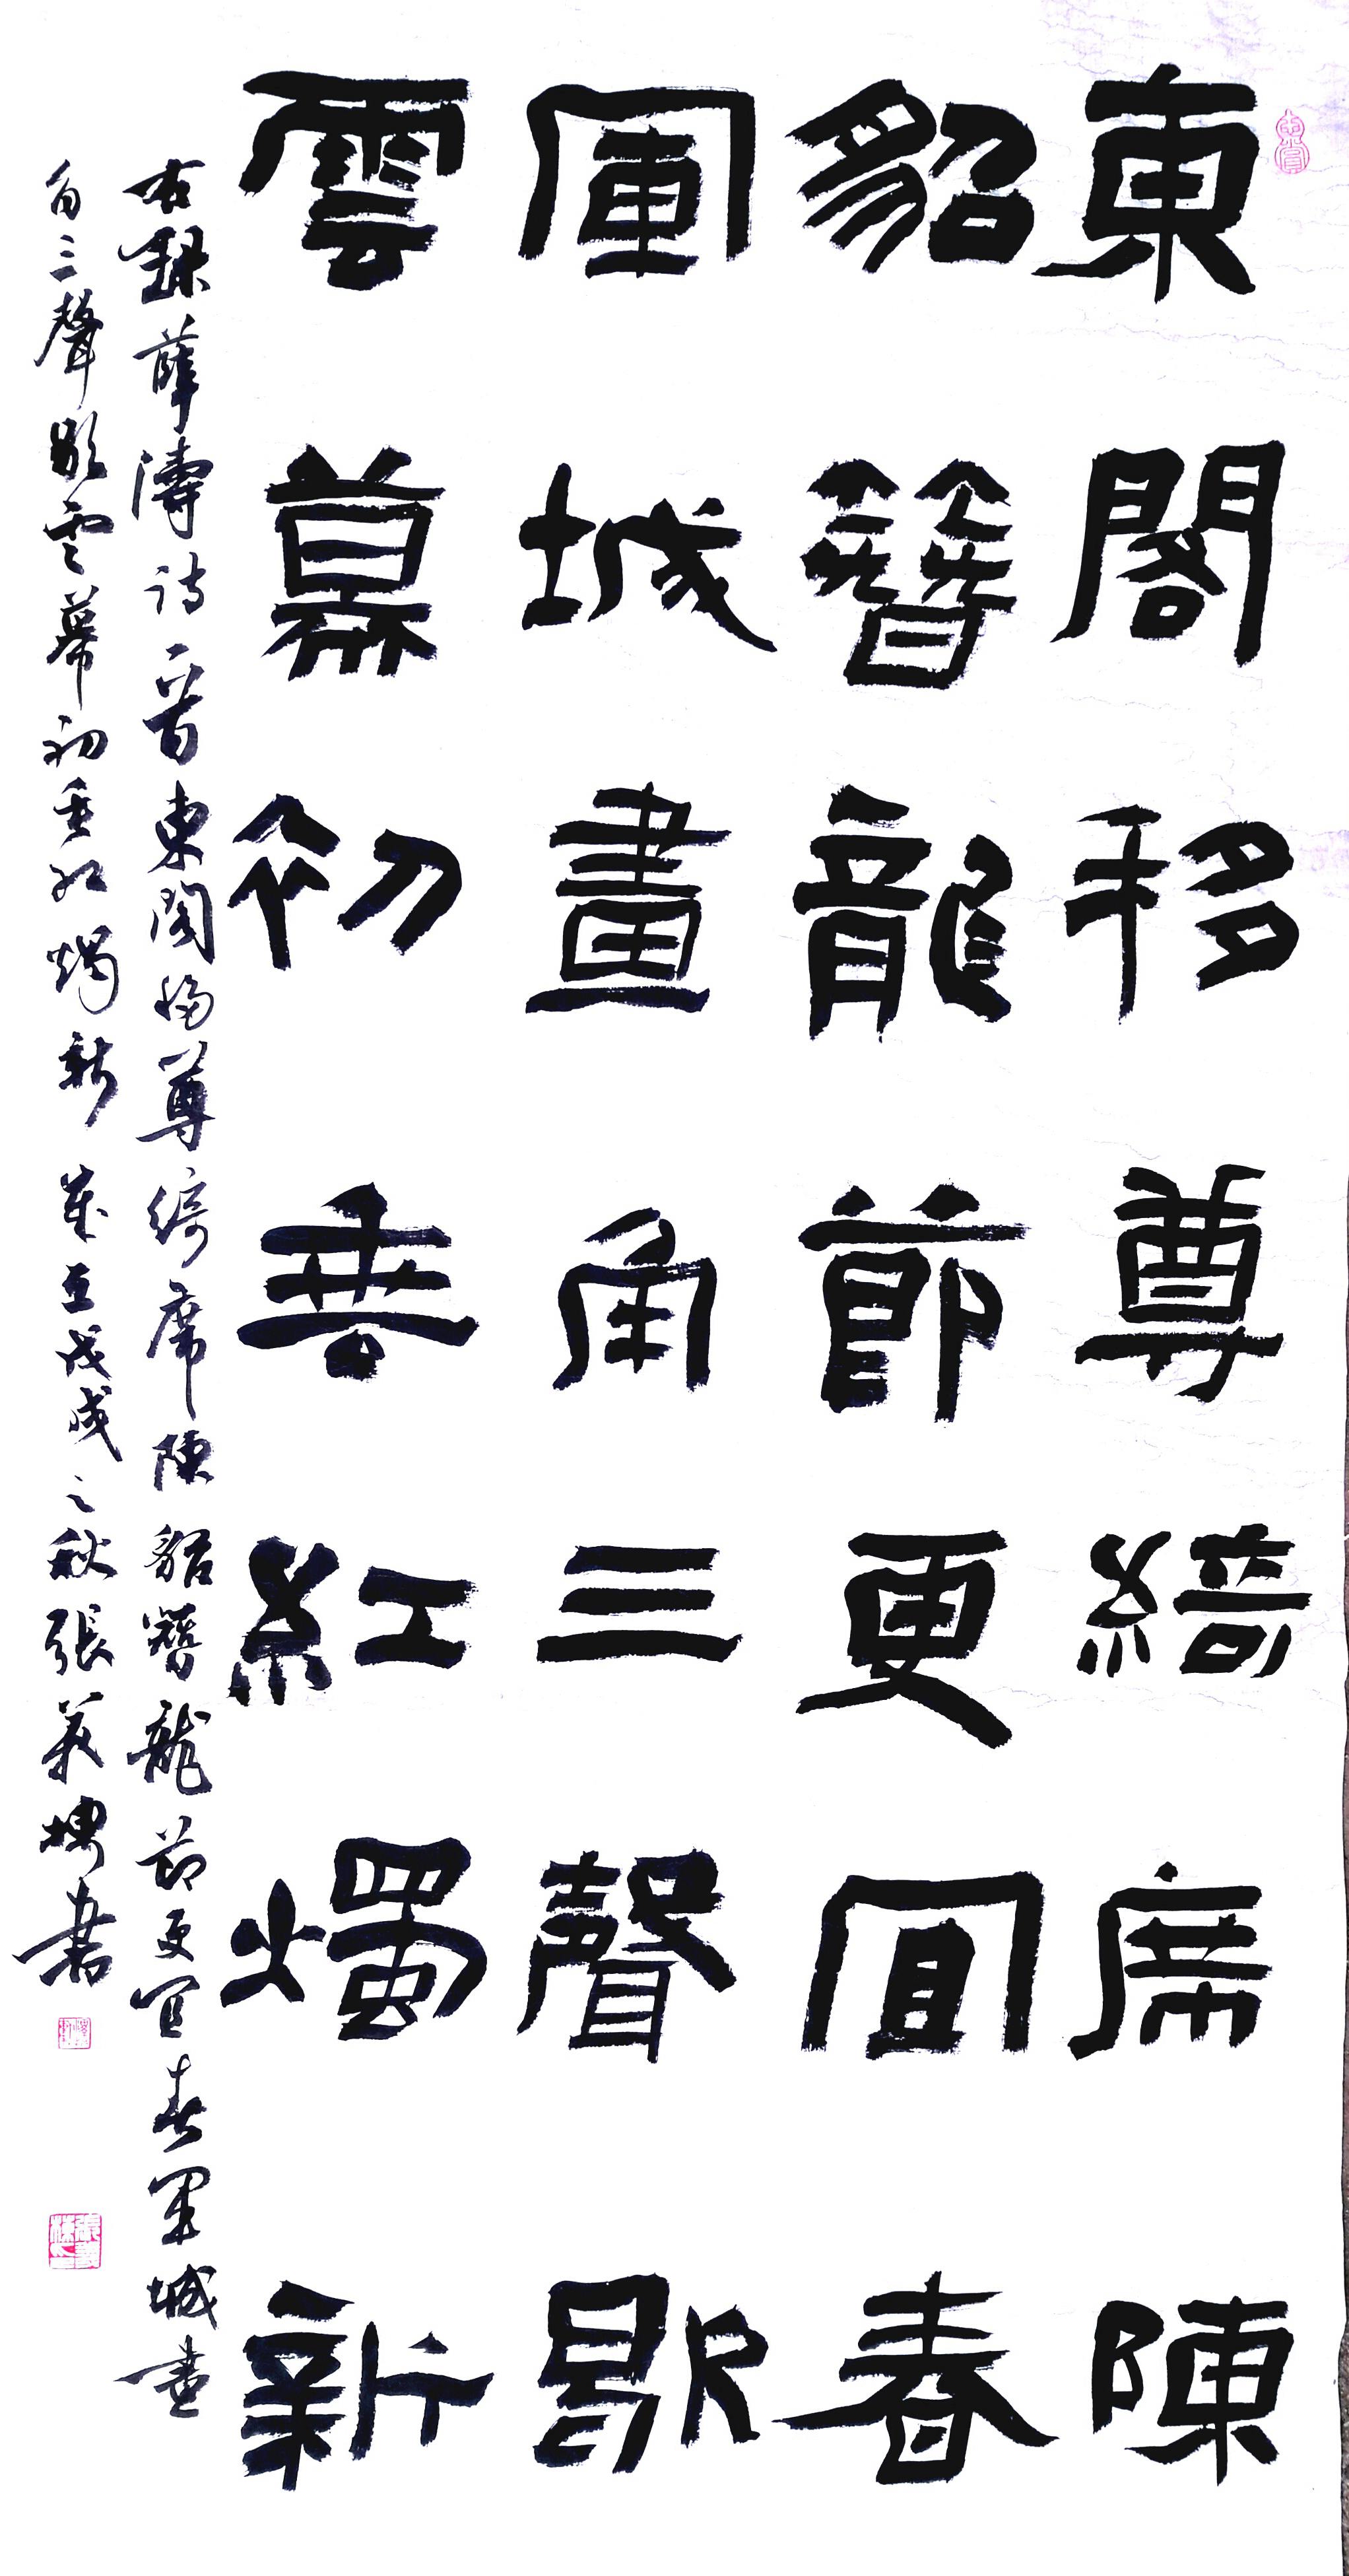 東閣移尊綺席陳
貂簪龍節更宜春
軍城畫角三聲歇
雲幕初垂紅燭新
右録薛濤詩一首東閣移尊綺席陳貂簪龍節更宜春軍城畫
角三聲歇雲幕初垂红燭新歲在戊戌之秋張義棟書